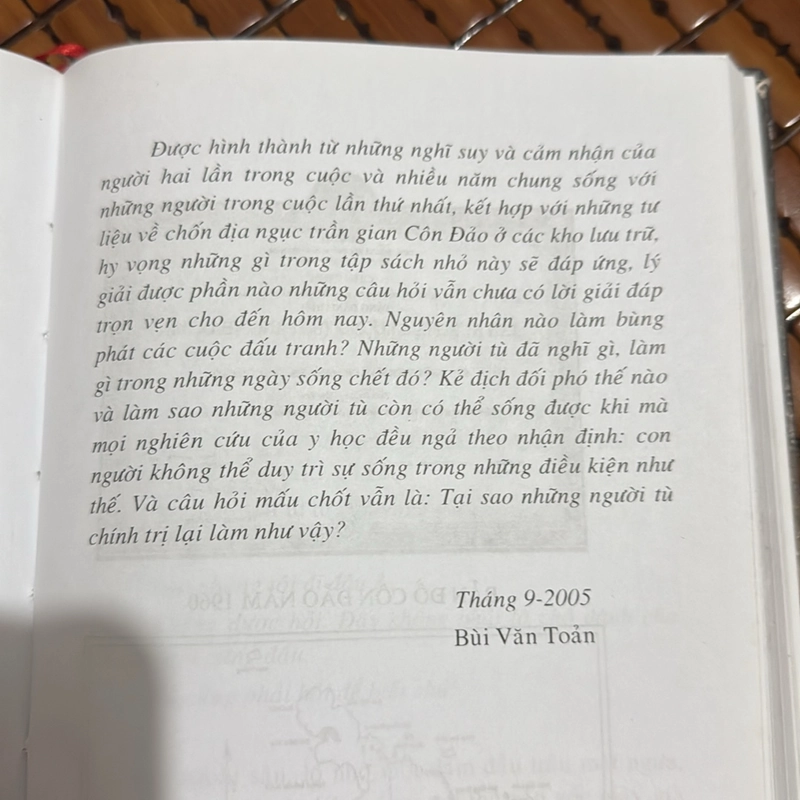 Được hình thành từ những nghĩ suy và cảm nhận của
người hai lần trong cuộc và nhiều năm chung sống với
những người trong cuộc lần thứ nhất, kết hợp với những tư
liệu về chốn địa ngục trần gian Côn Đảo ở các kho lưu trữ,
hy vọng những gì trong tập sách nhỏ này sẽ đáp ứng, lý
giải được phần nào những câu hỏi vẫn chưa có lời giải đáp
trọn vẹn cho đến hôm nay. Nguyên nhân nào làm bùng
phát các cuộc đấu tranh? Những người tù đã nghĩ gì, làm
gì trong những ngày sống chết đó? Kẻ địch đối phó thế nào
và làm sao những người tù còn có thể sống được khi mà
mọi nghiên cứu của y học đều ngả theo nhận định: con
người không thể duy trì sự sống trong những điều kiện như
thế. Và câu hỏi mấu chốt vẫn là: Tại sao những người tù
chính trị lại làm như vậy?
Tháng 9-2005
Bùi Văn Toản